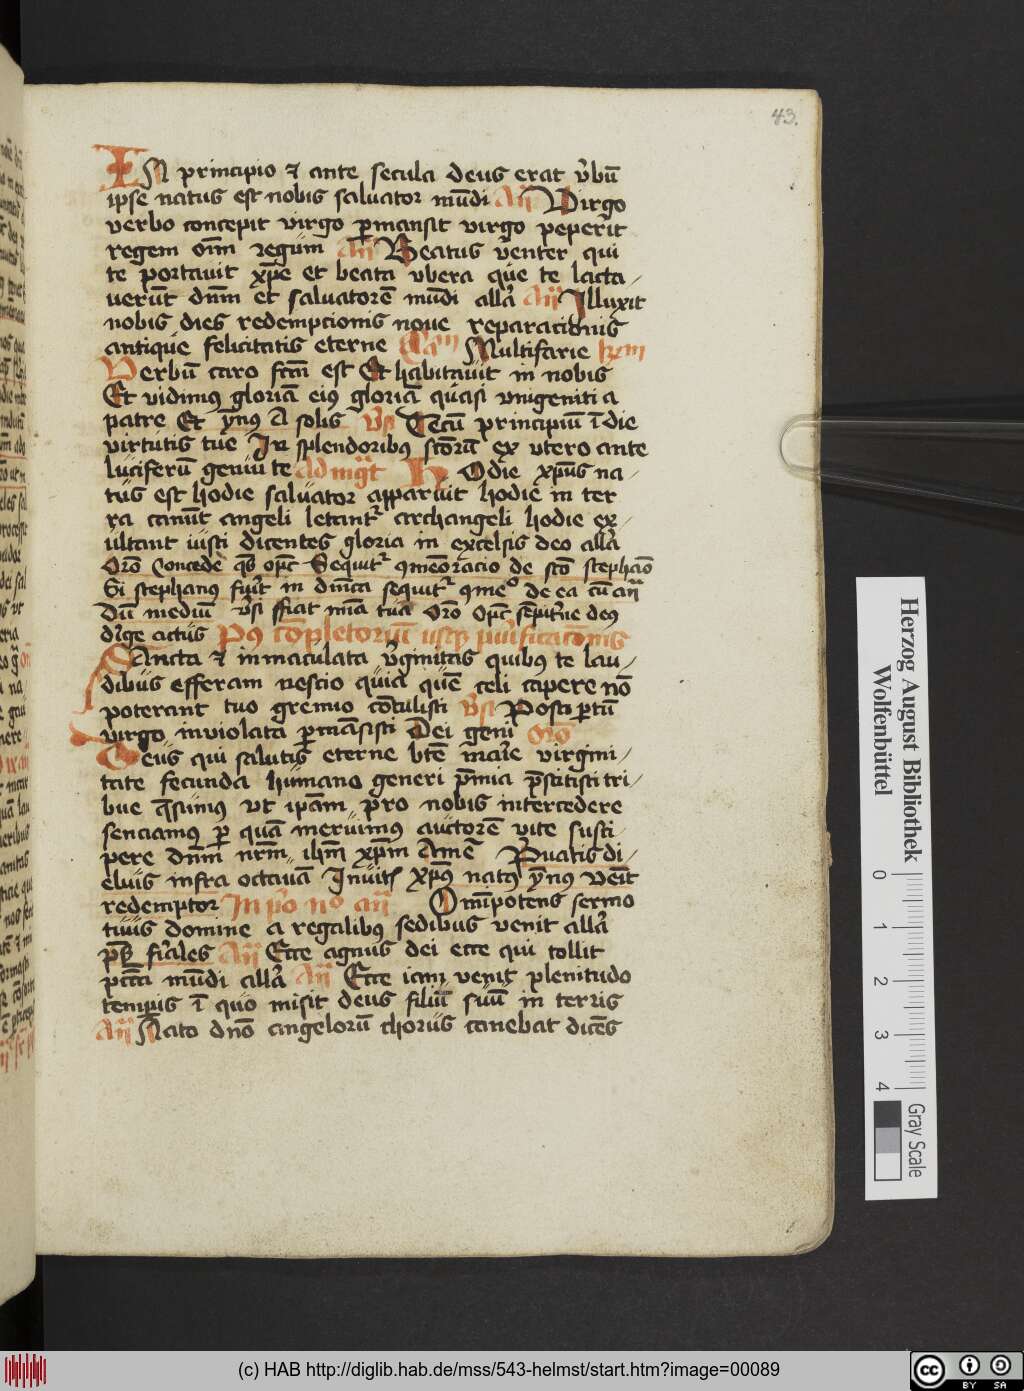 43.
IN principio ⁊ ante secula deus erat v̄bū
ipse natus est nobis saluator mūdi Añ Virgo
verbo concepit virgo ꝑmansit virgo peperit
regem oīm regum añ Beatus venter qui
te portauit xp̄e et beata vbera que te lacta
uerūt dn̄m et saluatorē mūdi all'a añ Illuxit
nobis dies redempcionis noue reparacionis
antique felicitatis eterne Multifarie
Verbū caro fc̄m est Et habitauit in nobis
Et vidimꝰ gloriā eiꝰ gloriā quasi vnigeniti a
patre Et ȳnus A solis v̄s Tecū principiū ī die
virtutis tue In splendoribꝰ sc̄orū ex vtero ante
luciferū genui te Ad mag̅t Hodie xp̄us na
tus est hodie saluator apparuit hodie in ter
ra canūt angeli letant᷑ archangeli hodie ex
ultant iusti dicentes gloria in excelsis deo all'a
Or̄o Concede q̄s op̄c Sequit᷑ ꝯmēoracio de sc̄o stephāo
Si stephanus fuīt in dn̄ica sequit᷑ ꝯmeº de ea cū añ
Dū mediū v̄s ffiat mīa tua or̄o op̄c sēpit'ne deꝰ
d'ige actus Pꝰ cōpletoriū usqꝫ purificacōnis
Sancta ⁊ inmaculata v'ginitas quibꝰ te lau
dibus efferam nescio quia quē celi capere nō
poterant tuo gremio cōtulisti v̄s Post ꝑtū
virgo inviolata ꝑmāsisti Dei geni or̄o
Deus qui salutis eterne btē marie virgini
tate fecunda humano generi p̄mia p̄stitisti tri
bue q̄sumꝰ vt ip̄am pro nobis intercedere
senciamꝰ ꝑ quā meruimꝰ auctorē vite susci
pere dn̄m nr̄m ihm̄ xp̄m Amē Pruatis di
ebus infra octauā Inuit xp̄us natꝰ ȳnus venit
redemptor In pº nº añ Om̄ipotens sermo
tuus domine a regalibꝰ sedibus venit all'a
p̄s fr̄iales Añ Ecce agnus dei ecce qui tollit
pcc̄ta mūdi all'a Añ Ecce iam venit plenitudo
tempus ī quo misit deus filiū suū in terris
Añ Nato dn̄o angelorū chorus canebat dicēs
Herzog August Bibliothek
Wolfenbüttel
0 1 2 3 4
Gray Scale
(c) HAB http://diglib.hab.de/mss/543-helmst/start.htm?image=00089
cc
BY SA